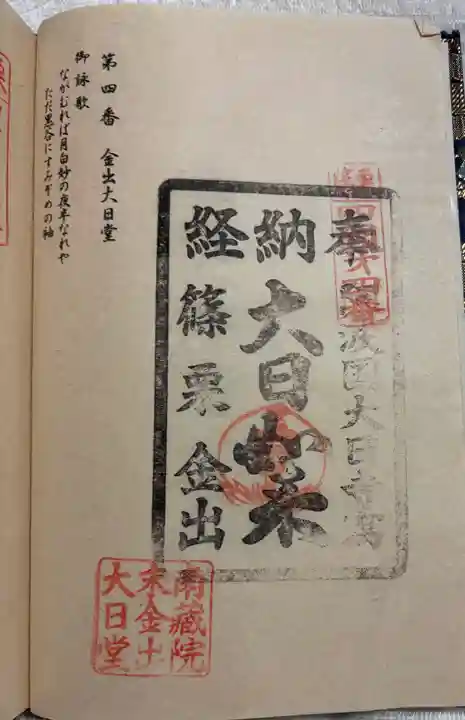 奉
波國大日寺寫
納
大日如来
経
篠栗金出
南藏院
末金出
大日堂
第四番 金出大日堂
御詠歌
ながむれば月白妙の夜半なれや
ただ黒谷にすみぞめの袖